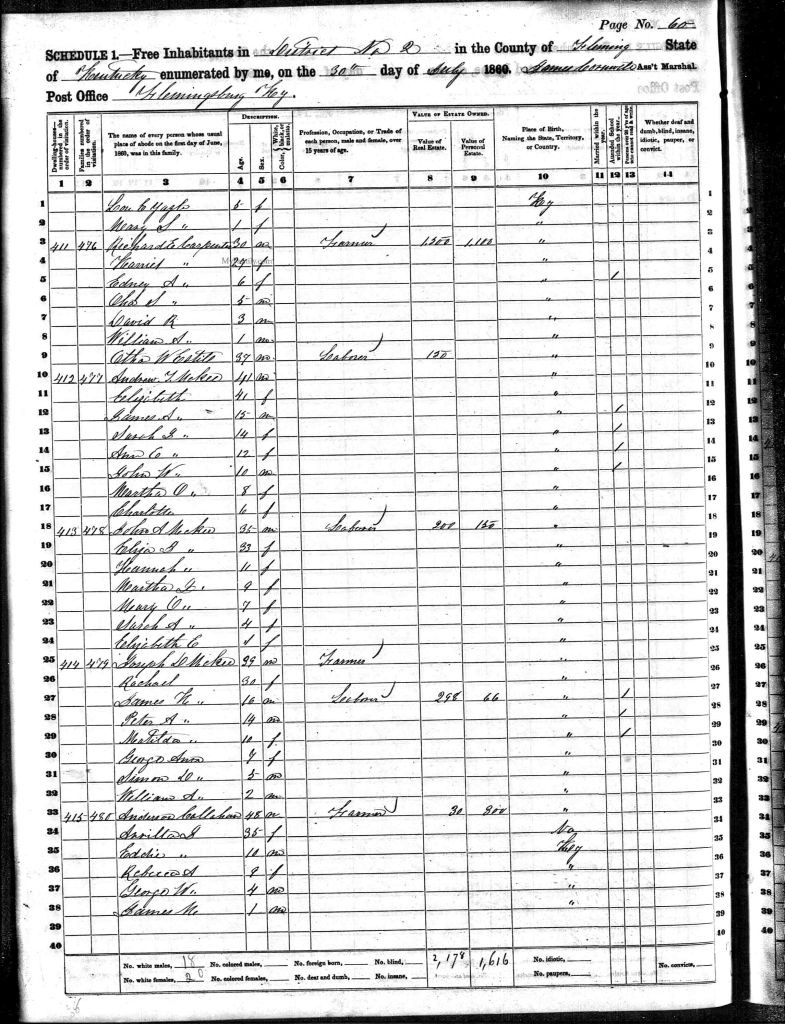 Page No. 60
SCHEDULE 1.—Free Inhabitants in District No 2 in the County of Fleming State
of Kentucky enumerated by me, on the 30th day of July 1860. Ass't Marshal.
Post Office Flemingsburg Ky.
Dwelling-houses— numbered in the order of visitation.
Families numbered in the order of visitation.
The name of every person whose usual place of abode on the first day of June, 1860, was in this family.
DESCRIPTION.
Age.
Sex.
Color, White, black, or mulatto.
Profession, Occupation, or Trade of each person, male and female, over 15 years of age.
VALUE OF ESTATE OWNED.
Value of Real Estate.
Value of Personal Estate.
Place of Birth, Naming the State, Territory, or Country.
Married within the year.
Attended School within the year.
Persons over 20 y'rs of age who cannot read & write.
Whether deaf and dumb, blind, insane, idiotic, pauper, or convict.
1 2 3 4 5 6 7 8 9 10 11 12 13 14
1 f Ky 1
2 Mary S " 1 f " 2
3 411 476 Richard E Carpenter 30 m Farmer 1,200 1,100 " 3
4 Harriet " 27 f " 4
5 Edney A " 6 f " 1 5
6 Cha S " 5 m " 6
7 David R 3 m " 7
8 William S " 1 m " 8
9 Otha W Estils 37 m Laborer 150 " 9
10 412 477 Andrew McKee 41 m " 10
11 Elizibeth 41 f " 11
12 James A " 15 m " 1 12
13 Sarah " 14 f " 1 13
14 Ann C " 12 f " 1 14
15 John W " 10 m " 1 15
16 Martha O " 8 f " 16
17 Charlotte 6 f " 17
18 413 478 John A McKee 35 m Laborer 200 150 " 18
19 Eliza " 33 f " 19
20 Hannah " 11 f " 20
21 Martha " 9 f " 21
22 Mary C " 7 f " 22
23 Sarah A " 4 f " 23
24 Elizibeth E f " 24
25 414 479 Joseph D McKee 39 m Farmer " 25
26 Rachael 30 f " 26
27 James H " 16 m Laborer 298 66 " 1 27
28 Peter A " 14 m " 1 28
29 Matilda " 10 f " 1 29
30 George Ann 7 f " 30
31 Simon D " 5 m " 31
32 William A " 2 m " 32
33 415 480 Anderson Callahan 48 m Farmer 30 300 " 33
34 Arvilla 35 f Va 34
35 Eddie " 10 m Ky 35
36 Rebecca A 9 f " 36
37 George W. 4 m " 37
38 James M. 1 m " 38
39
40 40
No. white males, 18 No. colored males, No. foreign born, No. blind, 2,178 1,616 No. idiotic, No. convicts,
No. white females, 20 No. colored females, No. deaf and dumb, No. insane, No. paupers,